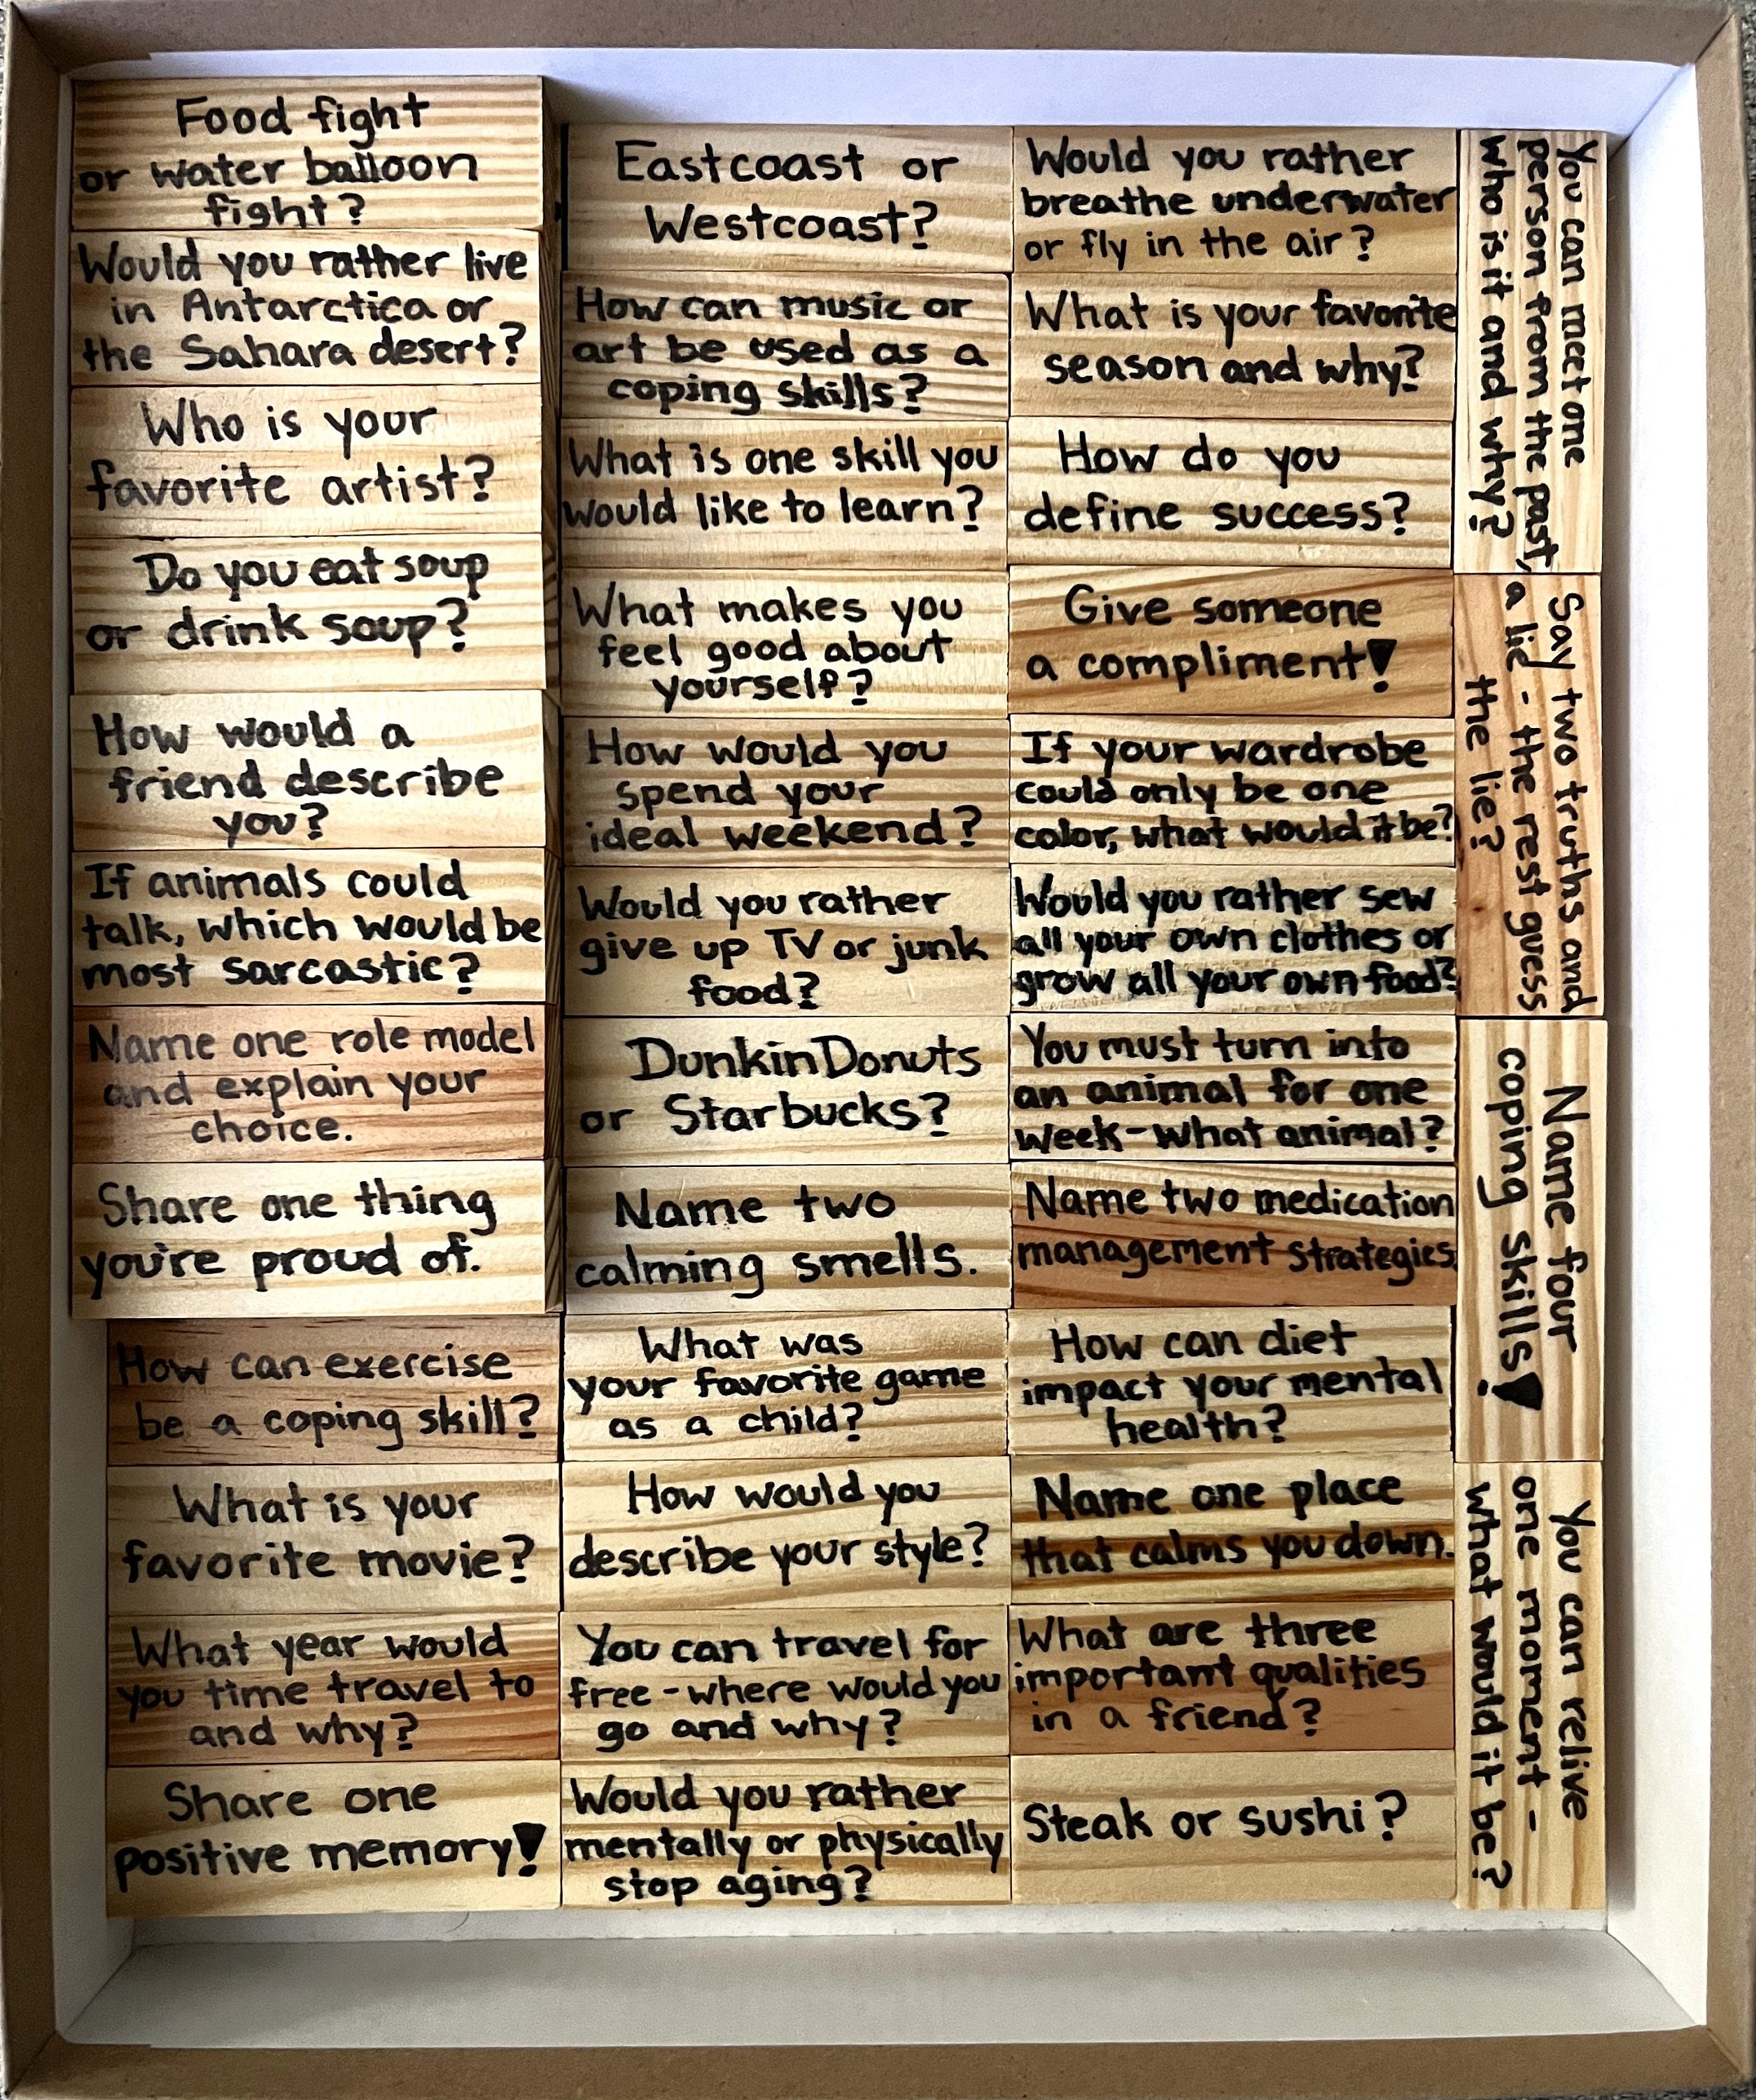 Food fight
or water balloon
fight?
Would you rather live
in Antarctica or
the Sahara desert?
Who is your
favorite artist?
Do you eat soup
or drink soup?
How would a
friend describe
you?
If animals could
talk, which would be
most sarcastic?
Name one role model
and explain your
choice.
Share one thing
you're proud of.
How can exercise
be a coping skill?
What is your
favorite movie?
What year would
you time travel to
and why?
Share one
positive memory!
Eastcoast or
Westcoast?
How can music or
art be used as a
coping skills?
What is one skill you
would like to learn?
What makes you
feel good about
yourself?
How would you
spend your
ideal weekend?
Would you rather
give up TV or junk
food?
DunkinDonuts
or Starbucks?
Name two
calming smells.
What was
your favorite game
as a child?
How would you
describe your style?
You can travel for
free - where would you
go and why?
Would you rather
mentally or physically
stop aging?
Would you rather
breathe underwater
or fly in the air?
What is your favorite
season and why?
How do you
define success?
Give someone
a compliment!
If your wardrobe
could only be one
color, what would it be?
Would you rather sew
all your own clothes or
grow all your own food?
You must turn into
an animal for one
week - what animal?
Name two medication
management strategies.
How can diet
impact your mental
health?
Name one place
that calms you down.
What are three
important qualities
in a friend?
Steak or sushi?
You can meet one
person from the past,
who is it and why?
Say two truths and
a lie - the rest guess
the lie?
Name four
coping skills!
You can relive
one moment -
what would it be?